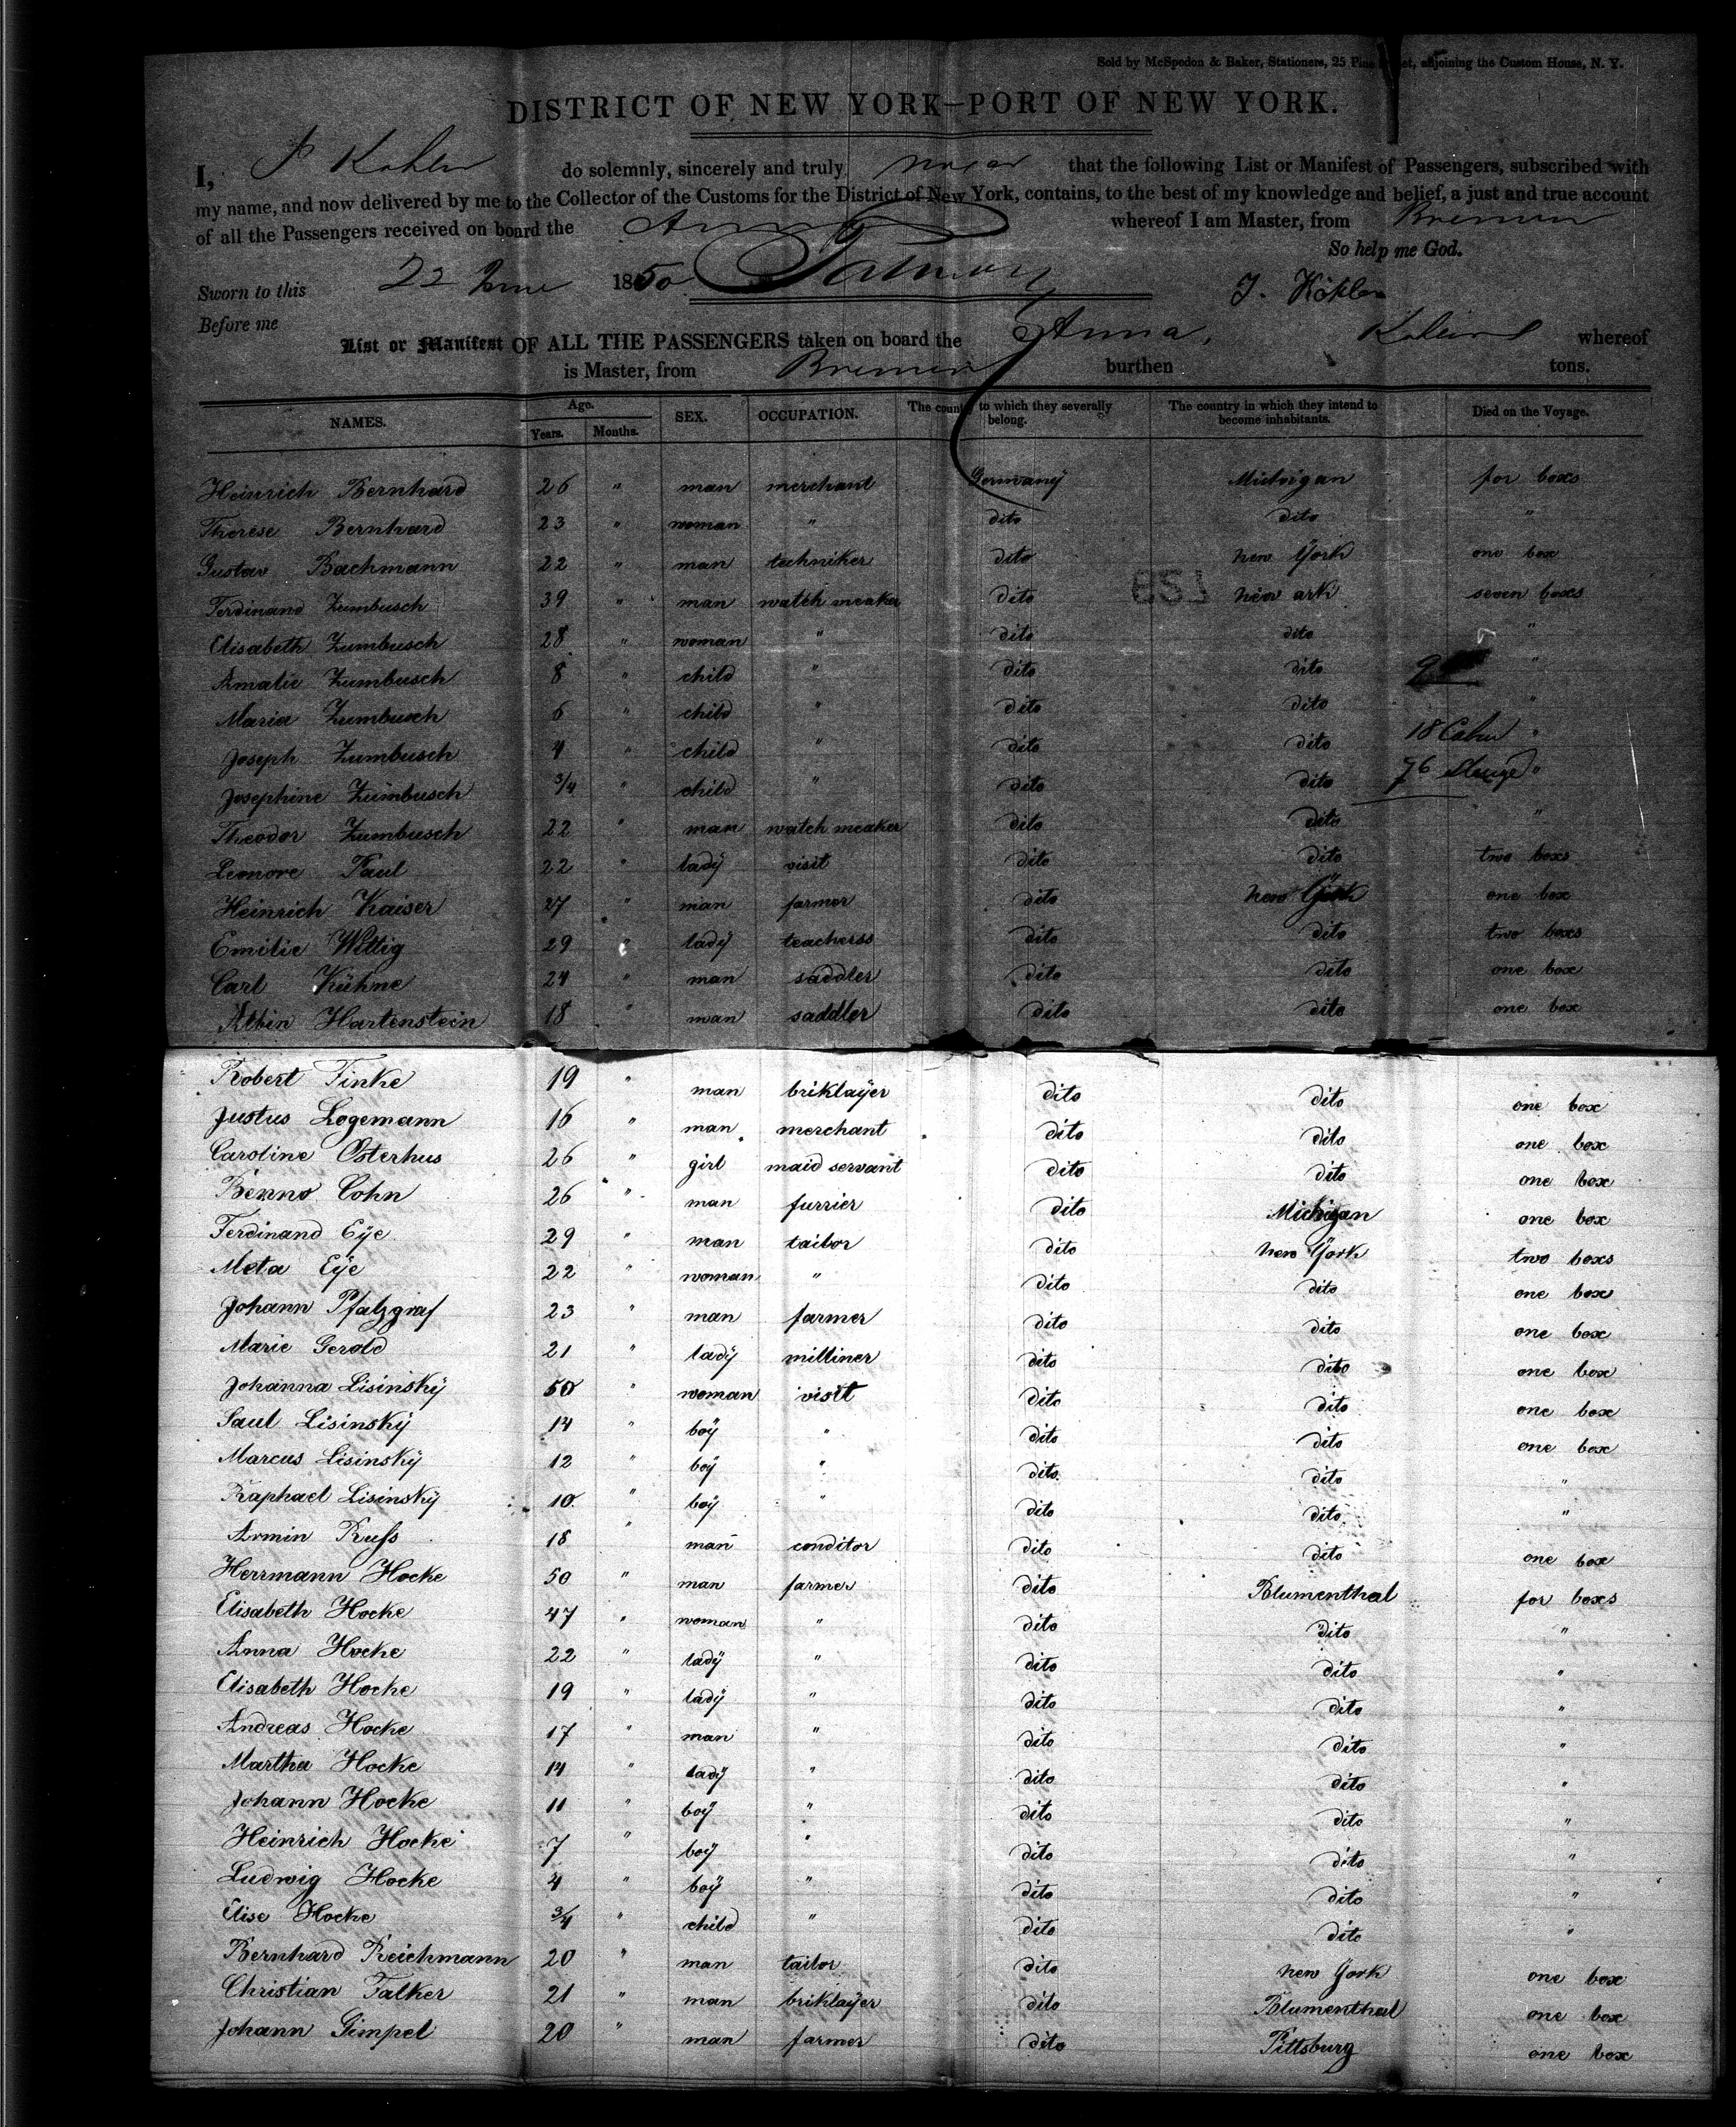 Sold by McSpedon & Baker, Stationers, 25 Pine Street, adjoining the Custom House, N. Y.
DISTRICT OF NEW YORK—PORT OF NEW YORK.
I, J Kohler do solemnly, sincerely and truly swear that the following List or Manifest of Passengers, subscribed with
my name, and now delivered by me to the Collector of the Customs for the District of New York, contains, to the best of my knowledge and belief, a just and true account
of all the Passengers received on board the Anna whereof I am Master, from Bremen
So help me God.
Sworn to this 22 June 1850 J. Köhler
Before me
List or Manifest OF ALL THE PASSENGERS taken on board the Anna, whereof
is Master, from Bremen burthen tons.
NAMES. Age. Years. Months. SEX. OCCUPATION. The country to which they severally belong. The country in which they intend to become inhabitants. Died on the Voyage.
Heinrich Bernhard 26 " man merchant Germany Michigan for boxs
Therese Bernhard 23 " woman " dito dito "
Gustav Bachmann 22 " man techniker dito new York one box
Ferdinand Zumbusch 39 " man watch meaker dito new ark seven boxs
Elisabeth Zumbusch 28 " woman " dito dito "
Amalie Zumbusch 8 " child " dito dito "
Maria Zumbusch 6 " child " dito dito "
Joseph Zumbusch 4 " child " dito dito 18 "
Josephine Zumbusch 3/4 " child " dito dito 76 "
Theodor Zumbusch 22 " man watch meaker dito dito "
Leonore Paul 22 " lady visit dito dito two boxs
Heinrich Kaiser 27 " man farmer dito new York one box
Emilie Wittig 29 " lady teacherss dito dito two boxs
Carl Kühne 24 " man saddler dito dito one box
Albin Hartenstein 18 " man saddler dito dito one box
Robert Finke 19 " man briklayer dito dito one box
Justus Logemann 16 " man merchant dito dito one box
Caroline Osterhus 26 " girl maid servant dito dito one box
Benno Cohn 26 " man furrier dito Michigan one box
Ferdinand Eÿe 29 " man tailor dito new York two boxs
Meta Eÿe 22 " woman " dito dito one box
Johann Pfalzgraf 23 " man farmer dito dito one box
Marie Gerold 21 " lady milliner dito dito one box
Johanna Lisinskÿ 50 " woman visit dito dito one box
Saul Lisinskÿ 14 " boÿ " dito dito one box
Marcus Lisinskÿ 12 " boÿ " dito dito "
Raphael Lisinskÿ 10 " boÿ " dito dito "
Armin Ruß 18 " man conditor dito dito one box
Herrmann Hocke 50 " man farmer dito Blumenthal for boxs
Elisabeth Hocke 47 " woman " dito dito "
Anna Hocke 22 " ladÿ " dito dito "
Elisabeth Hocke 19 " ladÿ " dito dito "
Andreas Hocke 17 " man " dito dito "
Martha Hocke 14 " ladÿ " dito dito "
Johann Hocke 11 " boÿ " dito dito "
Heinrich Hocke 7 " boÿ " dito dito "
Ludwig Hocke 4 " boÿ " dito dito "
Elise Hocke 3/4 " child " dito dito "
Bernhard Reichmann 20 " man tailor dito new York one box
Christian Falker 21 " man briklaÿer dito Blumenthal one box
Johann Gimpel 20 " man farmer dito Pittsburg one box